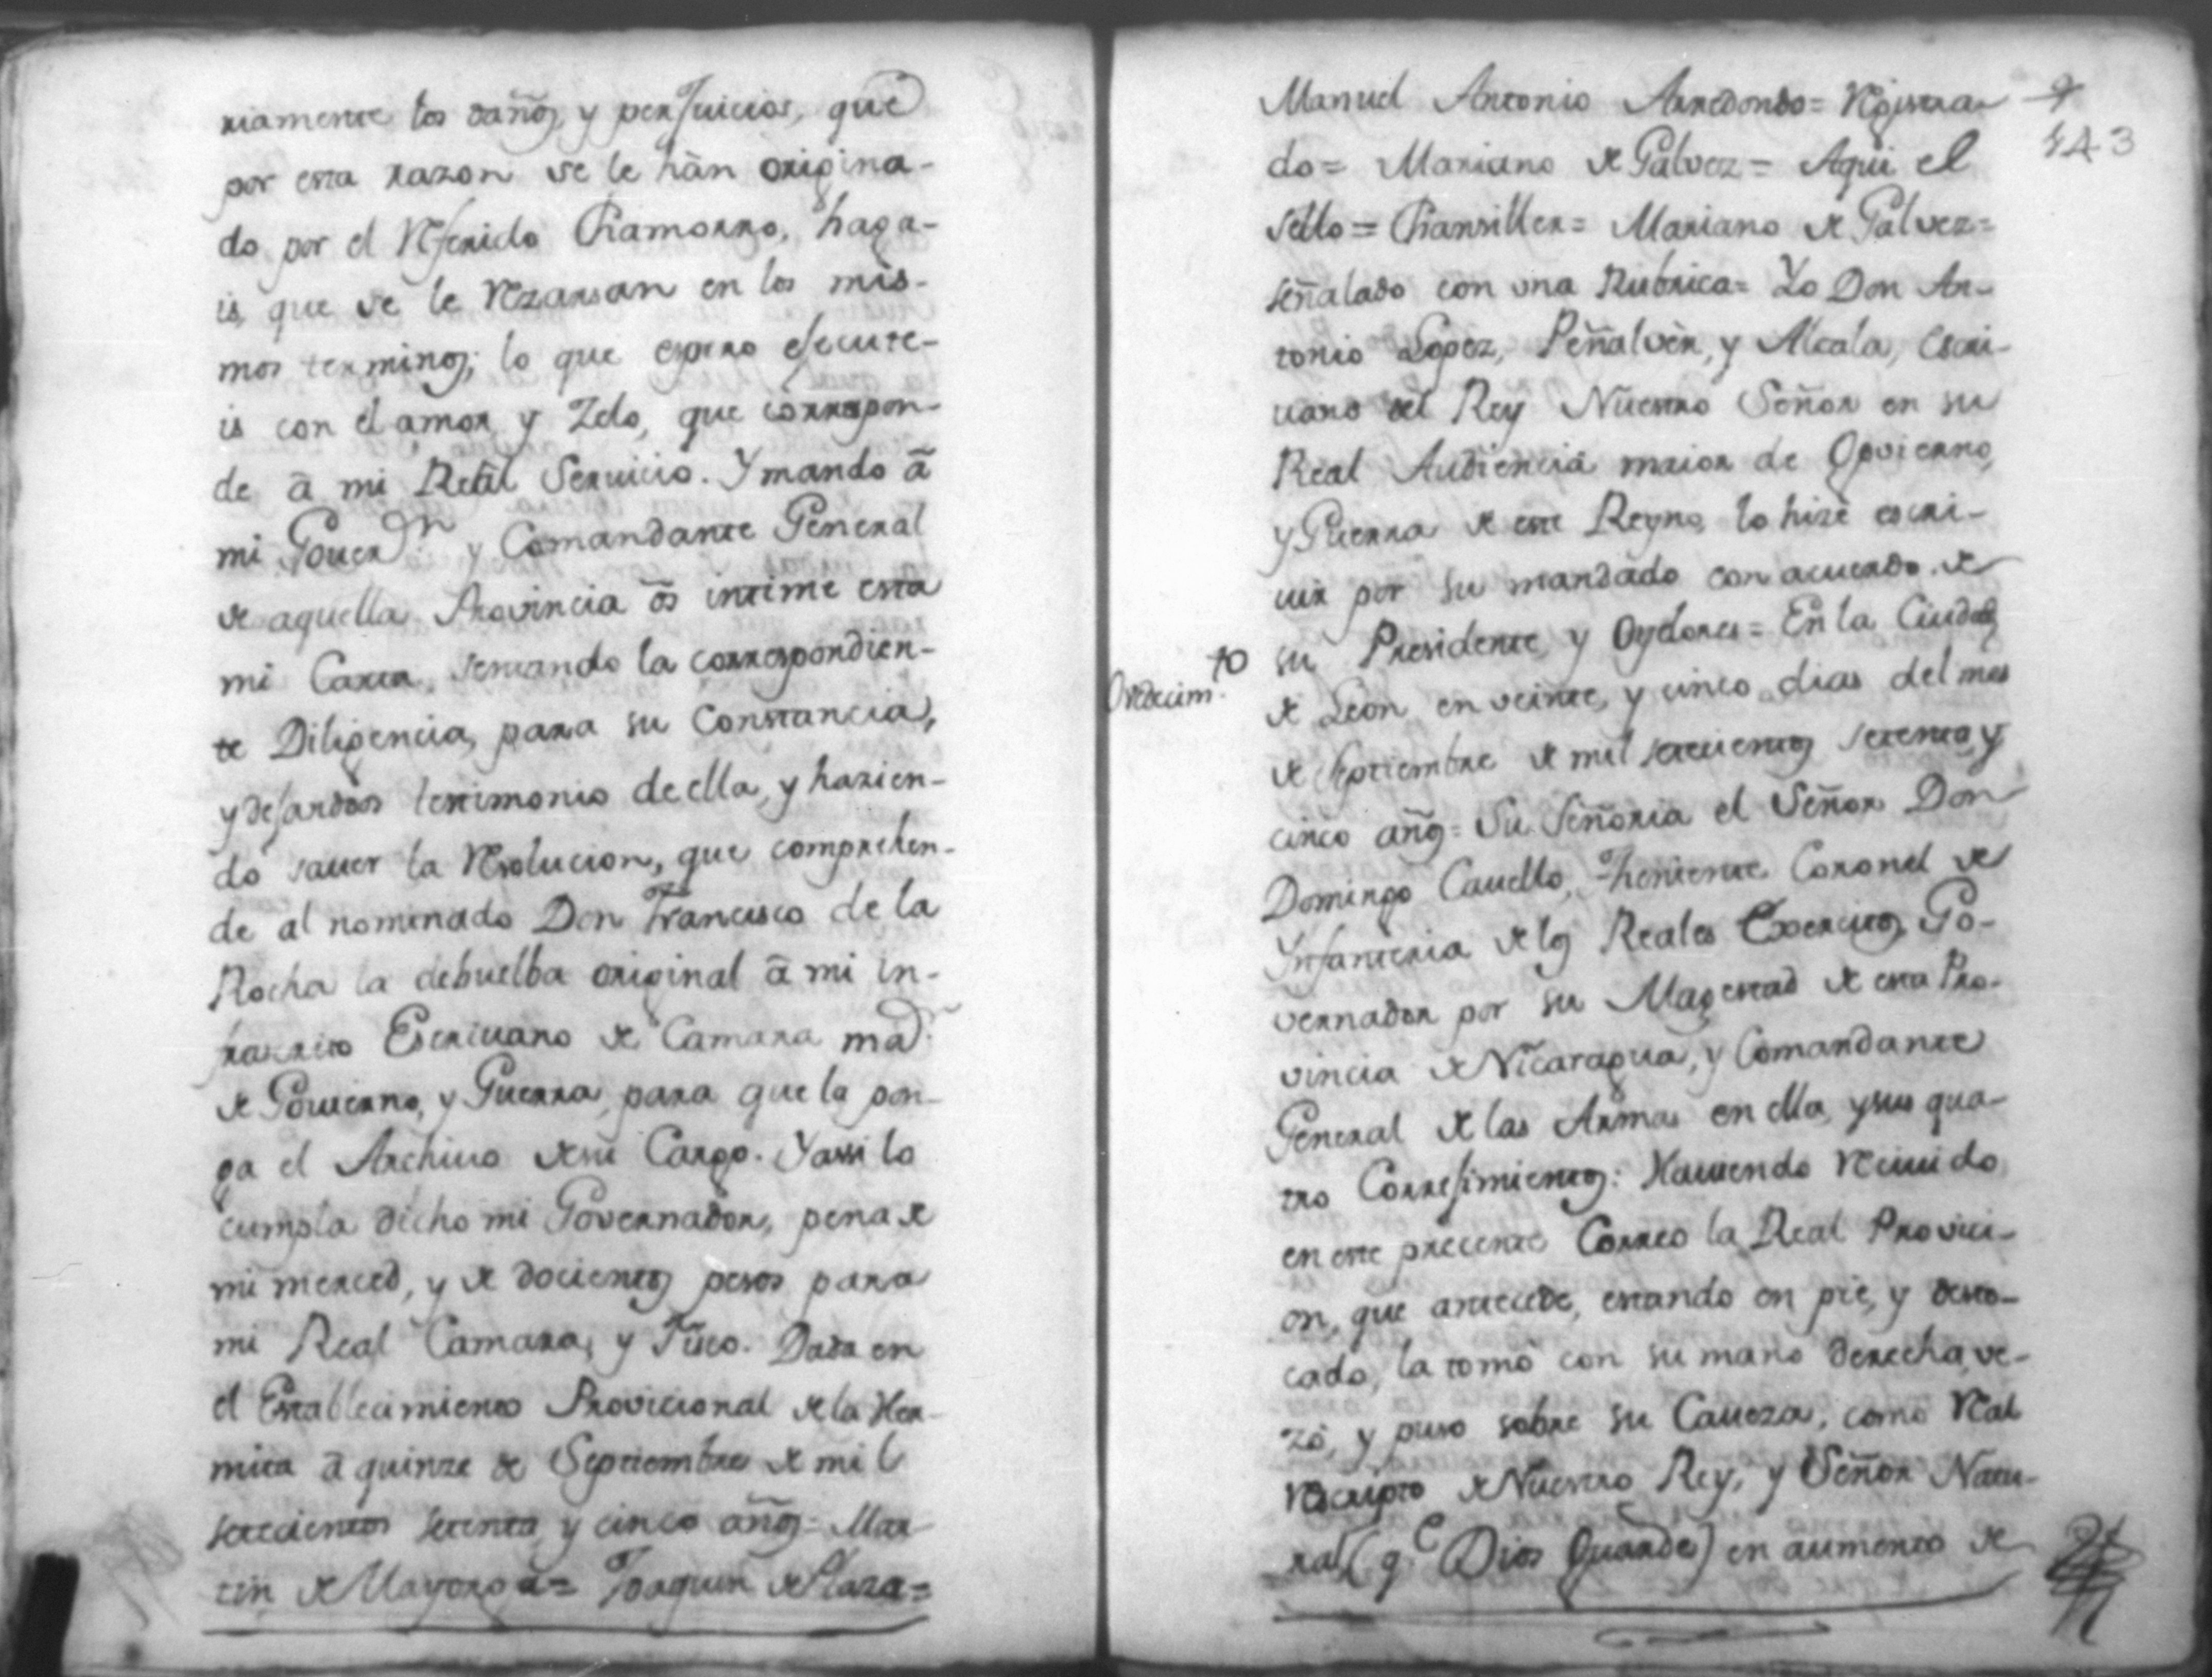 riamente los daños, y perJuicios, que
por esta razon se le hàn origina-
do por el Referido Chamorro, haga-
is, que se le Rezarsan en los mis-
mos terminos; lo que espero eJecute-
is con el amor y Zelo, que corrrespon-
de â mi Real Servicio. Y mando â
mi Gouer.ᵒʳ y Comandante General
de aquella Provincia ôs intime esta
mi Carta, sentando la correspondien-
te Diligencia, para su Constancia,
y deJandoos testimonio de ella, y hazien-
do sauer la Resolucion, que comprehen-
de al nominado Don Francisco de la
Rocha la debuelba original â mi in-
frascrito Escriuano de Camara maòr.
de Gouierno, y Guerra, para que la pon-
ga el Archiuo de su Cargo. Y assi lo
cumpla dicho mi Governador, pena de
mi merced, y de docientos pesos para
mi Real Camara, y Fisco. Dada en
el Establecimiento Provicional de la Her-
mita â quinze de Septiembre de mil
setecientos setenta, y cinco años = Mar-
tin de Mayorga = Joaquin de Plaza =
Manuel Antonio Arredondo = Registra- 9
143
do = Mariano de Galvez = Aqui el
sello = Chansiller = Mariano de Galvez =
señalado con una Rubrica = Yo Don An-
tonio Lopez, Peñalvèr, y Alcala, Escri-
uano del Rey Nuestro Señor en su
Real Audiencia maior de Govierno,
y Guerra de este Reyno, lo hize escri-
uir por su mandado con acuerdo de
su Presidente, y Oydores = En la Ciudad
Ovedecim.ᵗᵒ
de Leon en veinte, y cinco dias del mes
de Septiembre de mil setecientos setenta, y
cinco años = Su Señoria el Señor Don
Domingo Cauello, Theniente Coronel de
Ynfanteria de los Reales Exercitos, Go-
vernador por su Magestad de esta Pro-
vincia de Nicaragua, y Comandante
General de las Armas en ella, y sus qua-
tro CorreJimientos: Hauiendo Reciuido
en este precente Correo la Real Provici-
on, que antecede, estando en pie, y desto-
cado, la tomò con su mano derecha, ve-
zò, y puso sobre su Caueza, como Real
Rescripto de Nuestro Rey, y Señor Natu-
ral (q.ᵉ Dios Guarde) en aumento de